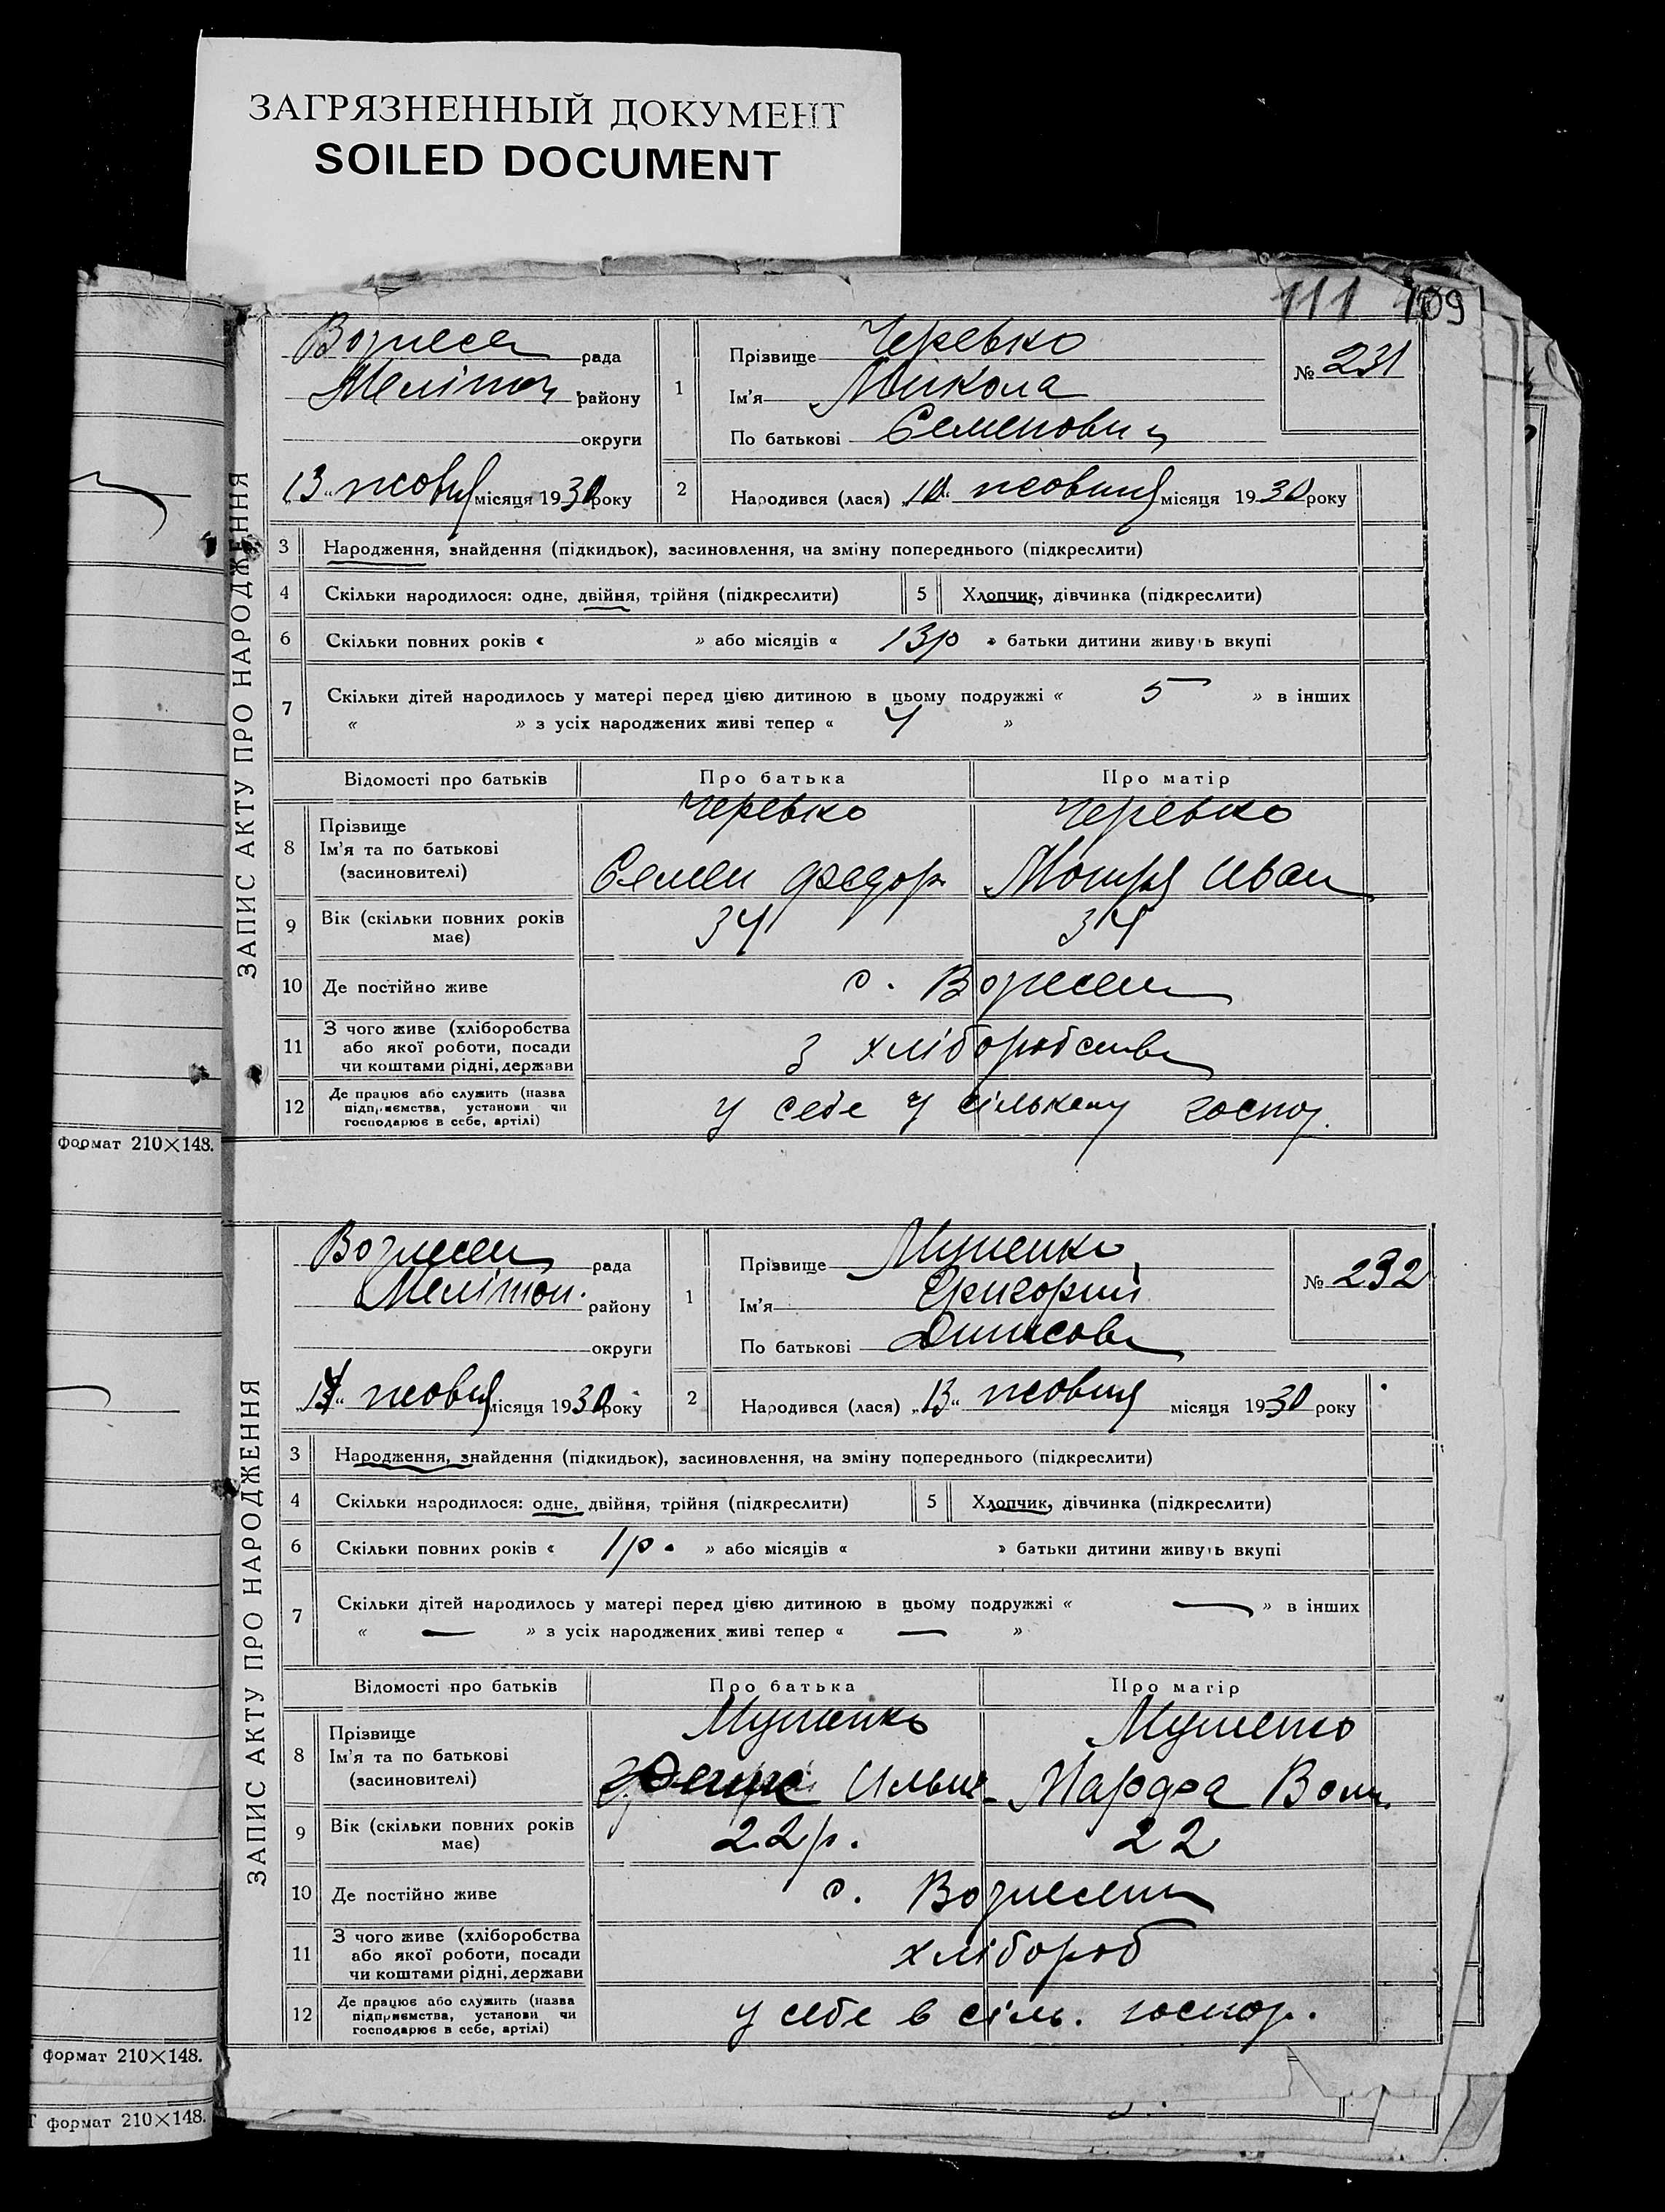 ЗАГРЯЗНЕННЫЙ ДОКУМЕНТ
SOILED DOCUMENT
111 109
ЗАПИС АКТУ ПРО НАРОДЖЕННЯ
Вознесен рада
Мелітоп району
округи
„13“ жовтня місяця 1930 року
1
Прізвище Черевко
Ім'я Микола
По батькові Семенович
№ 231
2 Народився (лася) „10“ жовтня місяця 1930 року
3 Народження, знайдення (підкидьок), засиновлення, на зміну попереднього (підкреслити)
4 Скільки народилося: одне, двійня, трійня (підкреслити) 5 Хлопчик, дівчинка (підкреслити)
6 Скільки повних років « » або місяців « 13р » батьки дитини живуть вкупі
7 Скільки дітей народилось у матері перед цією дитиною в цьому подружжі « 5 » в інших
« » з усіх народжених живі тепер « 4 »
Відомості про батьків Про батька Про матір
8 Прізвище Черевко Черевко
Ім'я та по батькові
(засиновителі) Семен Федор Мотря Иван
9 Вік (скільки повних років має) 34 34
10 Де постійно живе с. Вознесен
11 З чого живе (хліборобства
або якої роботи, посади
чи коштами рідні, держави
з хліборобства
12 Де працює або служить (назва
підприємства, установи чи
господарює в себе, артілі)
у себе у сількому госпо.
формат 210×148.
ЗАПИС АКТУ ПРО НАРОДЖЕННЯ
Вознесен рада
Мелітоп. району
округи
жовтня місяця 1930 року
1
Прізвище
Ім'я Григорий
По батькові Динисов
№ 232
2 Народився (лася) „13“ жовтня місяця 1930 року
3 Народження, знайдення (підкидьок), засиновлення, на зміну попереднього (підкреслити)
4 Скільки народилося: одне, двійня, трійня (підкреслити) 5 Хлопчик, дівчинка (підкреслити)
6 Скільки повних років « 1р. » або місяців « » батьки дитини живуть вкупі
7 Скільки дітей народилось у матері перед цією дитиною в цьому подружжі « — » в інших
« — » з усіх народжених живі тепер « — »
Відомості про батьків Про батька Про матір
8 Прізвище
Ім'я та по батькові
(засиновителі) Ильич
9 Вік (скільки повних років має) 22р. 22
10 Де постійно живе с. Вознесен
11 З чого живе (хліборобства
або якої роботи, посади
чи коштами рідні, держави
хлібороб
12 Де працює або служить (назва
підприємства, установи чи
господарює в себе, артілі)
у себе в сіль. госпор.
формат 210×148.
формат 210×148.